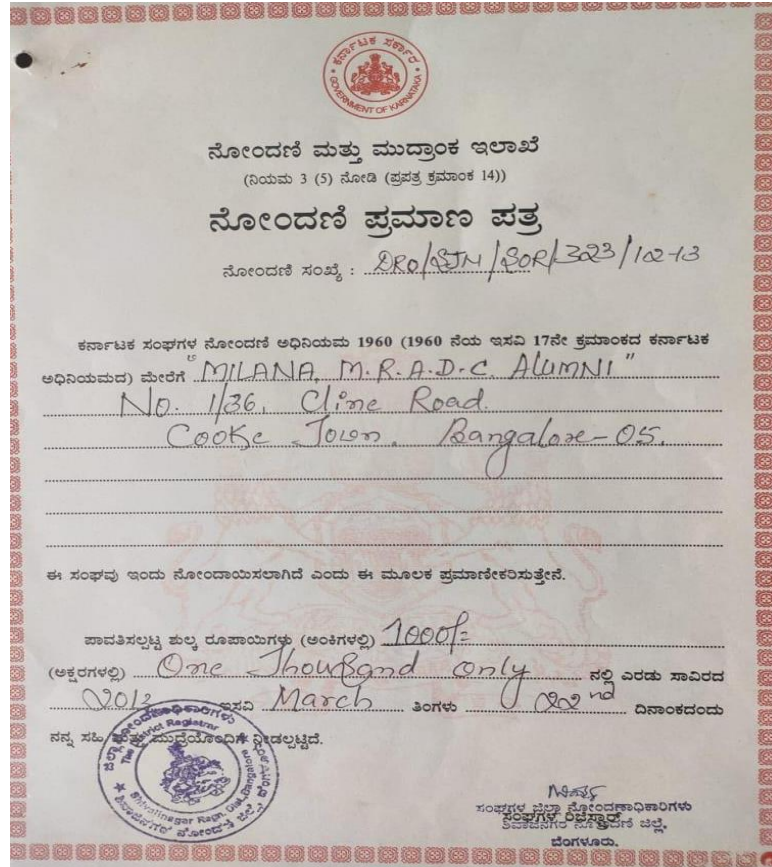 ಕರ್ನಾಟಕ ಸರ್ಕಾರ
GOVERNMENT OF KARNATAKA
ನೋಂದಣಿ ಮತ್ತು ಮುದ್ರಾಂಕ ಇಲಾಖೆ
(ನಿಯಮ 3 (5) ನೋಡಿ (ಪ್ರಪತ್ರ ಕ್ರಮಾಂಕ 14))
ನೋಂದಣಿ ಪ್ರಮಾಣ ಪತ್ರ
ನೋಂದಣಿ ಸಂಖ್ಯೆ : DRO/SJN/SOR/323/12-13
ಕರ್ನಾಟಕ ಸಂಘಗಳ ನೋಂದಣಿ ಅಧಿನಿಯಮ 1960 (1960 ನೆಯ ಇಸವಿ 17ನೇ ಕ್ರಮಾಂಕದ ಕರ್ನಾಟಕ
ಅಧಿನಿಯಮದ) ಮೇರೆಗೆ "MILANA, M.R.A.D.C. ALUMNI"
No. 1/36, Cline Road.
Cooke Town, Bangalore-05.
ಈ ಸಂಘವು ಇಂದು ನೋಂದಾಯಿಸಲಾಗಿದೆ ಎಂದು ಈ ಮೂಲಕ ಪ್ರಮಾಣೀಕರಿಸುತ್ತೇನೆ.
ಪಾವತಿಸಲ್ಪಟ್ಟ ಶುಲ್ಕ ರೂಪಾಯಿಗಳು (ಅಂಕಿಗಳಲ್ಲಿ) 1000/=
(ಅಕ್ಷರಗಳಲ್ಲಿ) One Thousand only ನಲ್ಲಿ ಎರಡು ಸಾವಿರದ
2013 ಇಸವಿ March ತಿಂಗಳು 22nd ದಿನಾಂಕದಂದು
ನನ್ನ ಸಹಿ ಮತ್ತು ಮುದ್ರೆಯೊಂದಿಗೆ ನೀಡಲ್ಪಟ್ಟಿದೆ.
ಜಿಲ್ಲಾ ನೋಂದಣಾಧಿಕಾರಿಗಳು
The District Registrar
Shivajinagar Regn. Dist. Bangalore
ಶಿವಾಜಿನಗರ ನೋಂದಣಿ ಜಿಲ್ಲೆ
ಸಂಘಗಳ ಜಿಲ್ಲಾ ನೋಂದಣಾಧಿಕಾರಿಗಳು
ಸಂಘಗಳ ರಿಜಿಸ್ಟ್ರಾರ್
ಶಿವಾಜಿನಗರ ನೋಂದಣಿ ಜಿಲ್ಲೆ,
ಬೆಂಗಳೂರು.